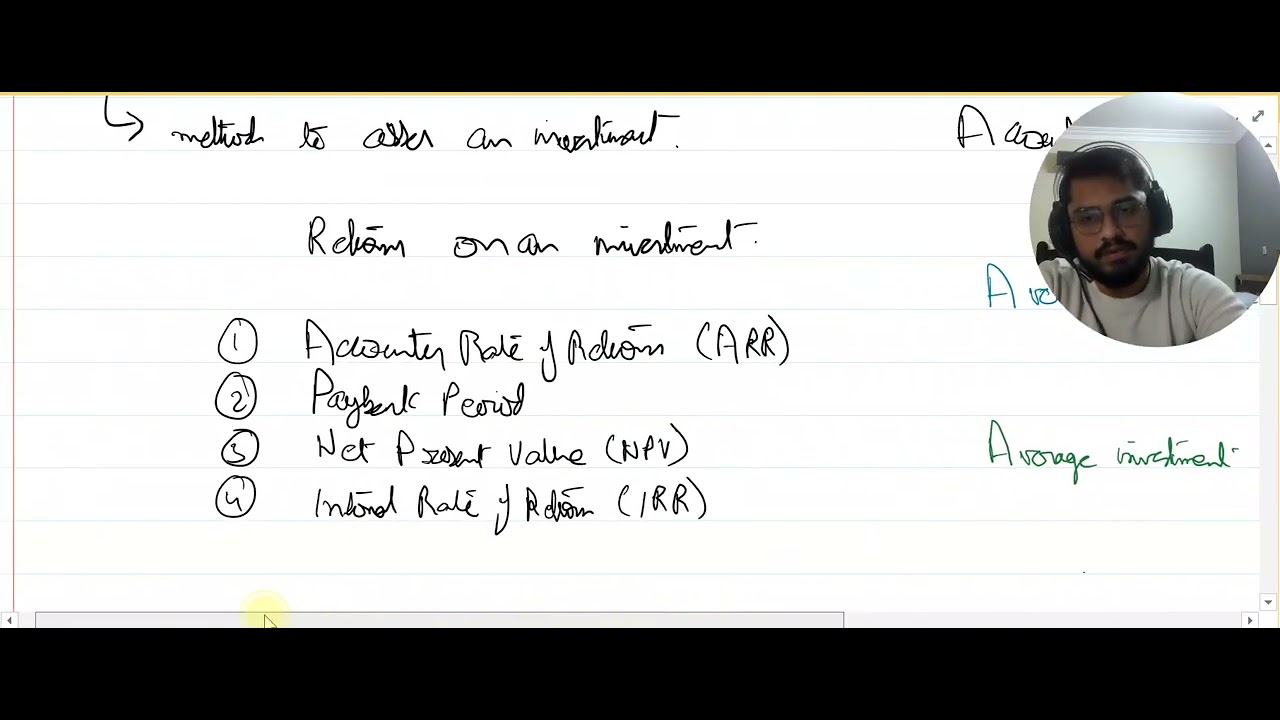 methods to asses an investment.
Return on an investment.
1 Accounting Rate of Return (ARR)
2 Payback Period
3 Net Present Value (NPV)
4 Internal Rate of Return (IRR)
Average investment